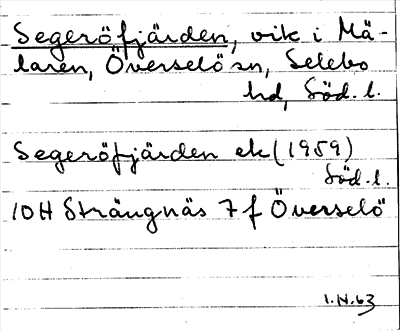 Segeröfjärden, vik i Mä-
laren, Överselö sn, Selebo
hd, Söd. l.
Segeröfjärden ek (1959)
Söd. l.
10H Strängnäs 7 f Överselö
1.N.63